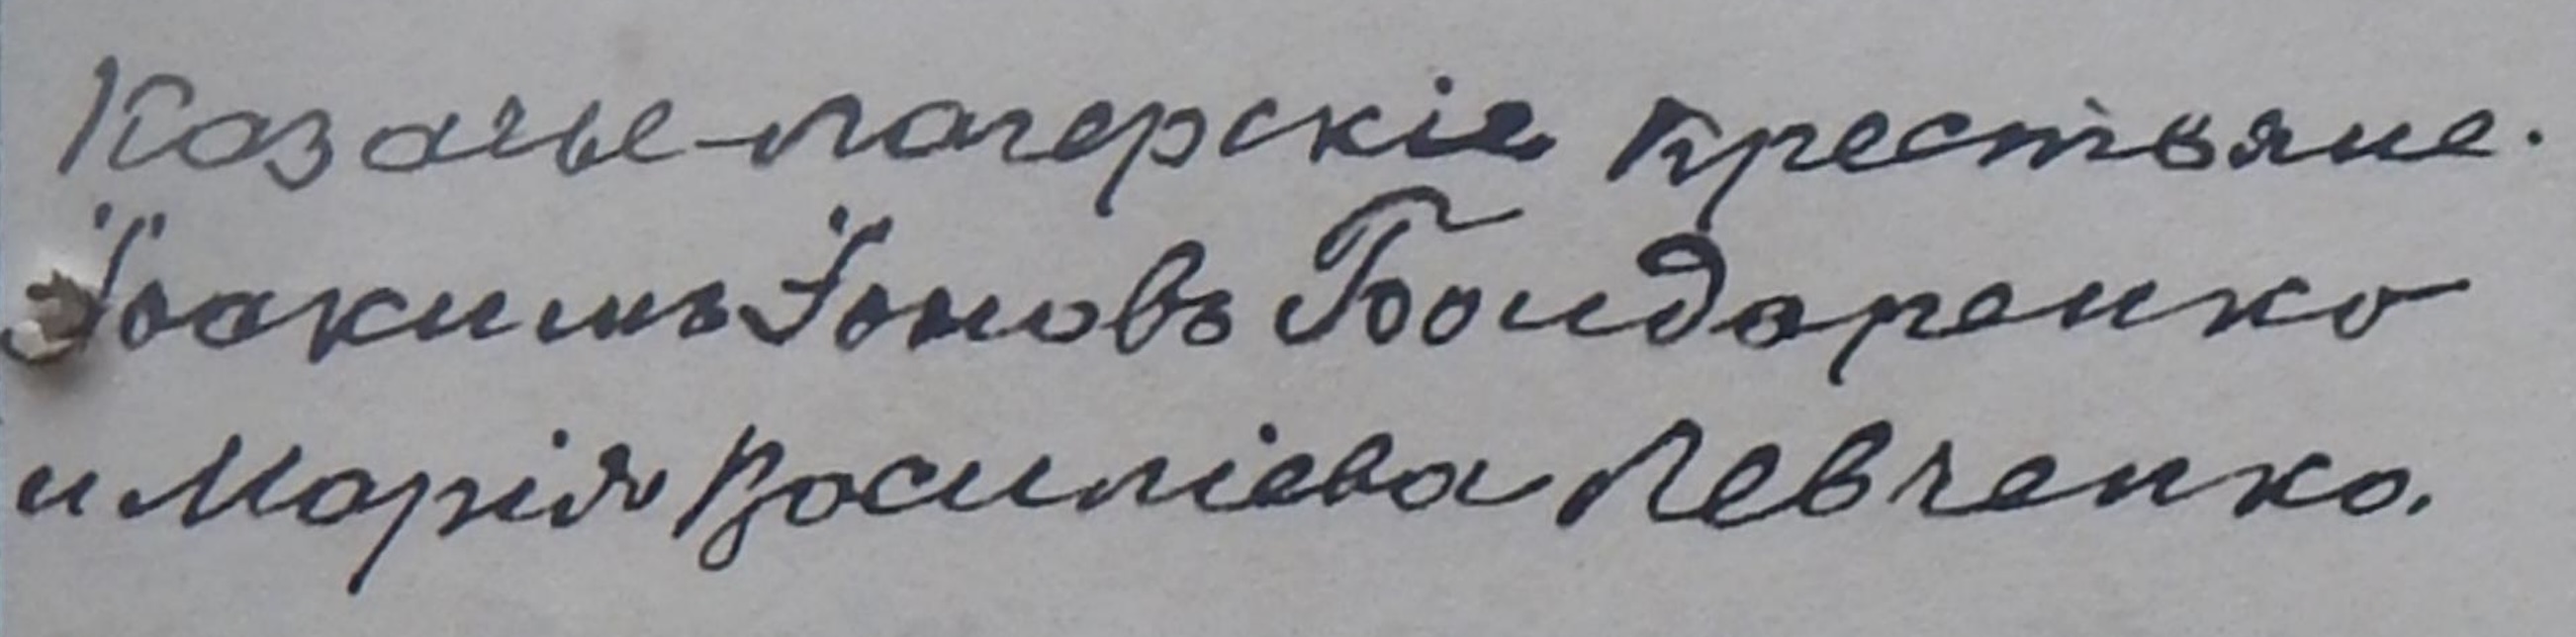 Казачье-лагерскіе крестьяне.
Іоакимъ Іоновъ Бондаренко
и Марія Василіева Левченко.